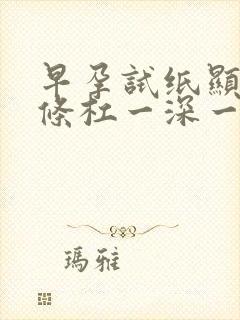 早孕試纸顯
條杠一深一
瑪雅